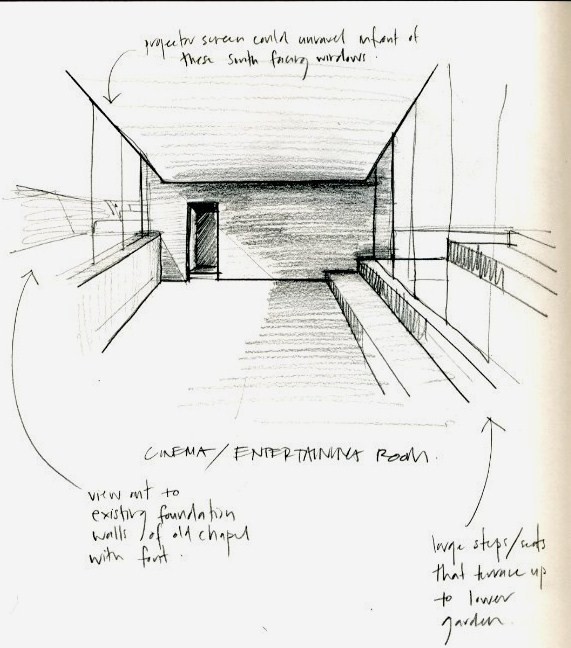 projector screen could unravel infront of
these south facing windows.
CINEMA/ENTERTAINING ROOM.
view out to
existing foundation
walls of old chapel
with font.
large steps/seats
that terrace up
to lower
garden.